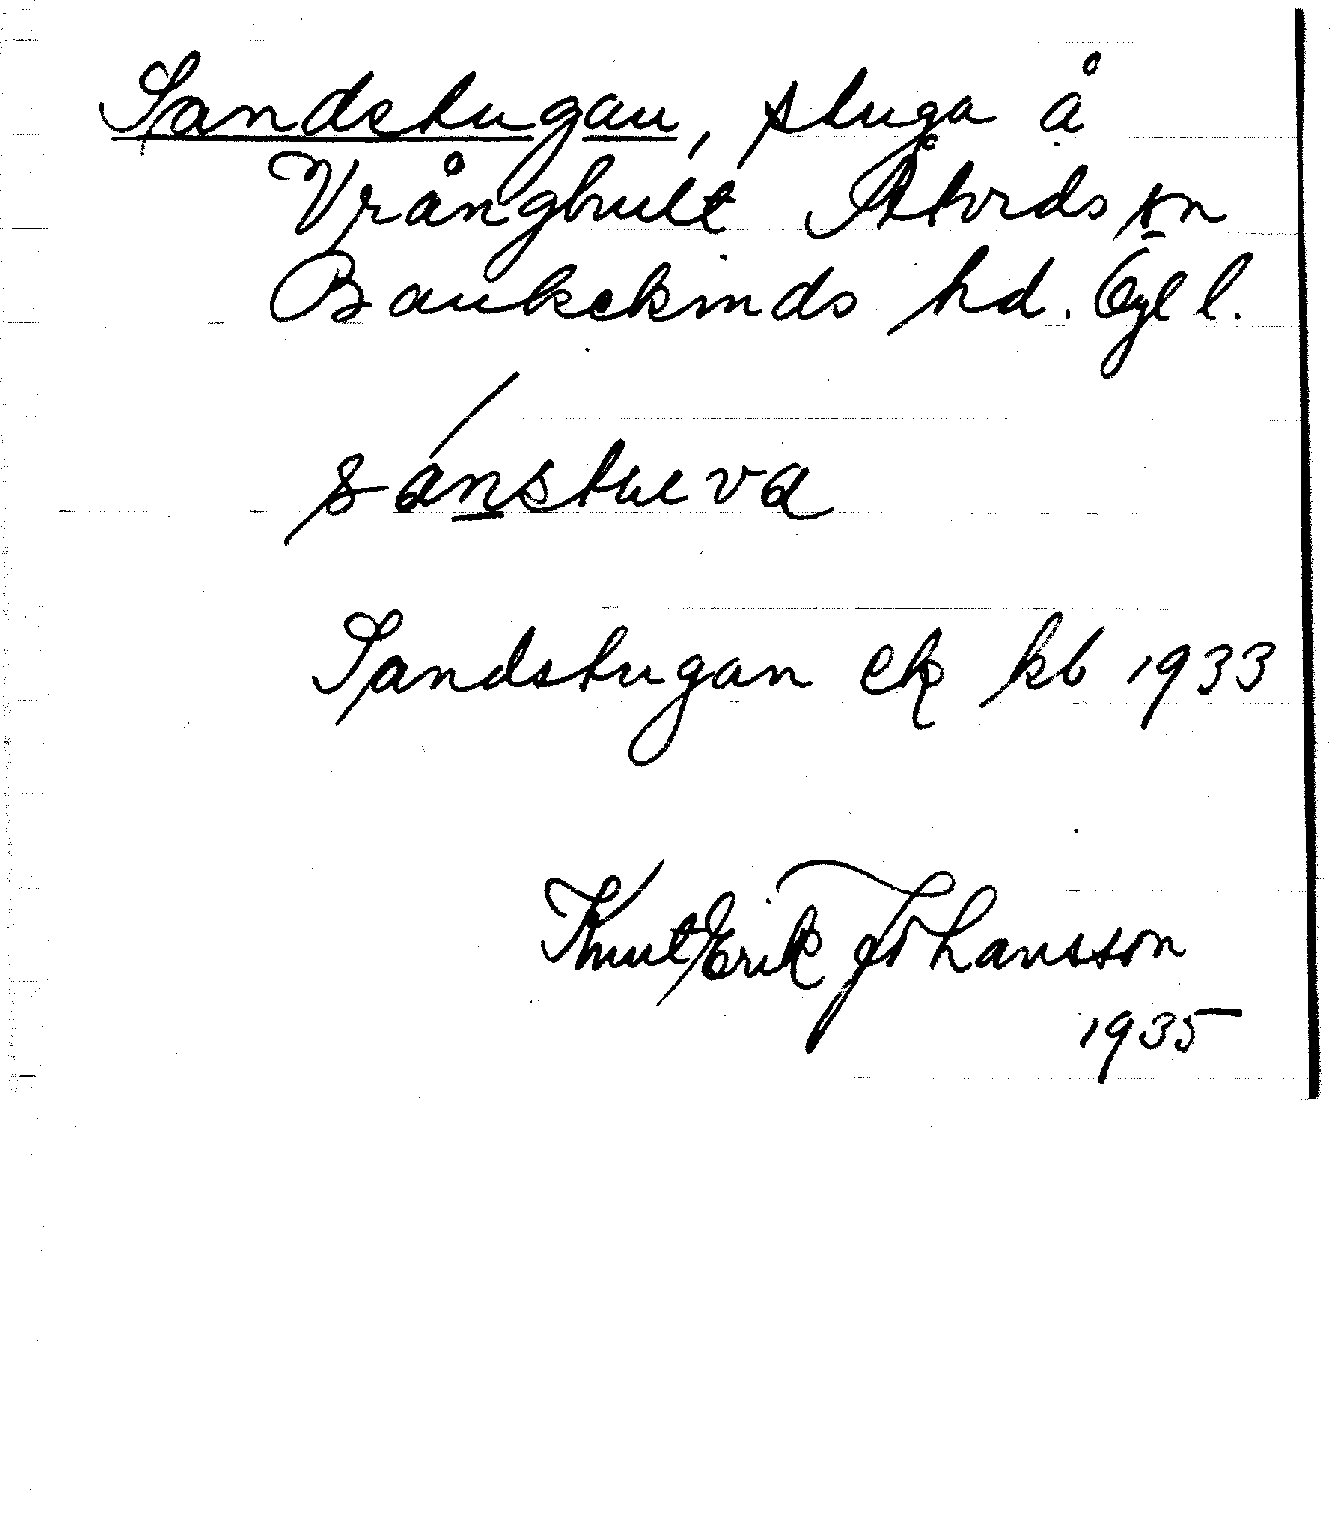 Sandstugan, stuga å
Vrångbult Åtvids sn
Bankekinds hd. Ögl l.
sánstueva
Sandstugan ek kb 1933
Knut Erik Johansson
1935